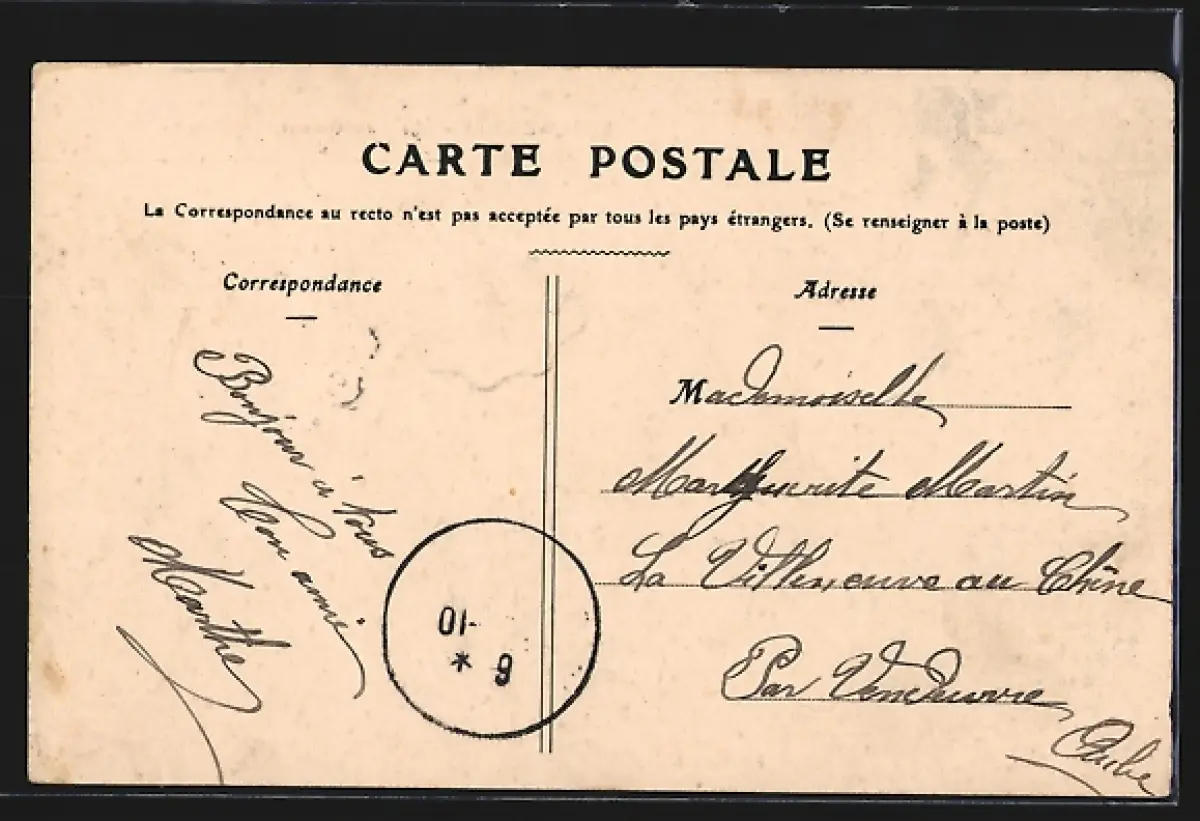 CARTE POSTALE
La Correspondance au recto n'est pas acceptée par tous les pays étrangers. (Se renseigner à la poste)
Correspondance
Bonjour à tous
Ton amie
Marthe
Adresse
Mademoiselle
Marguerite Martin
La Villeneuve au Chêne
Par Vendeuvre
Aube
10-
* 9